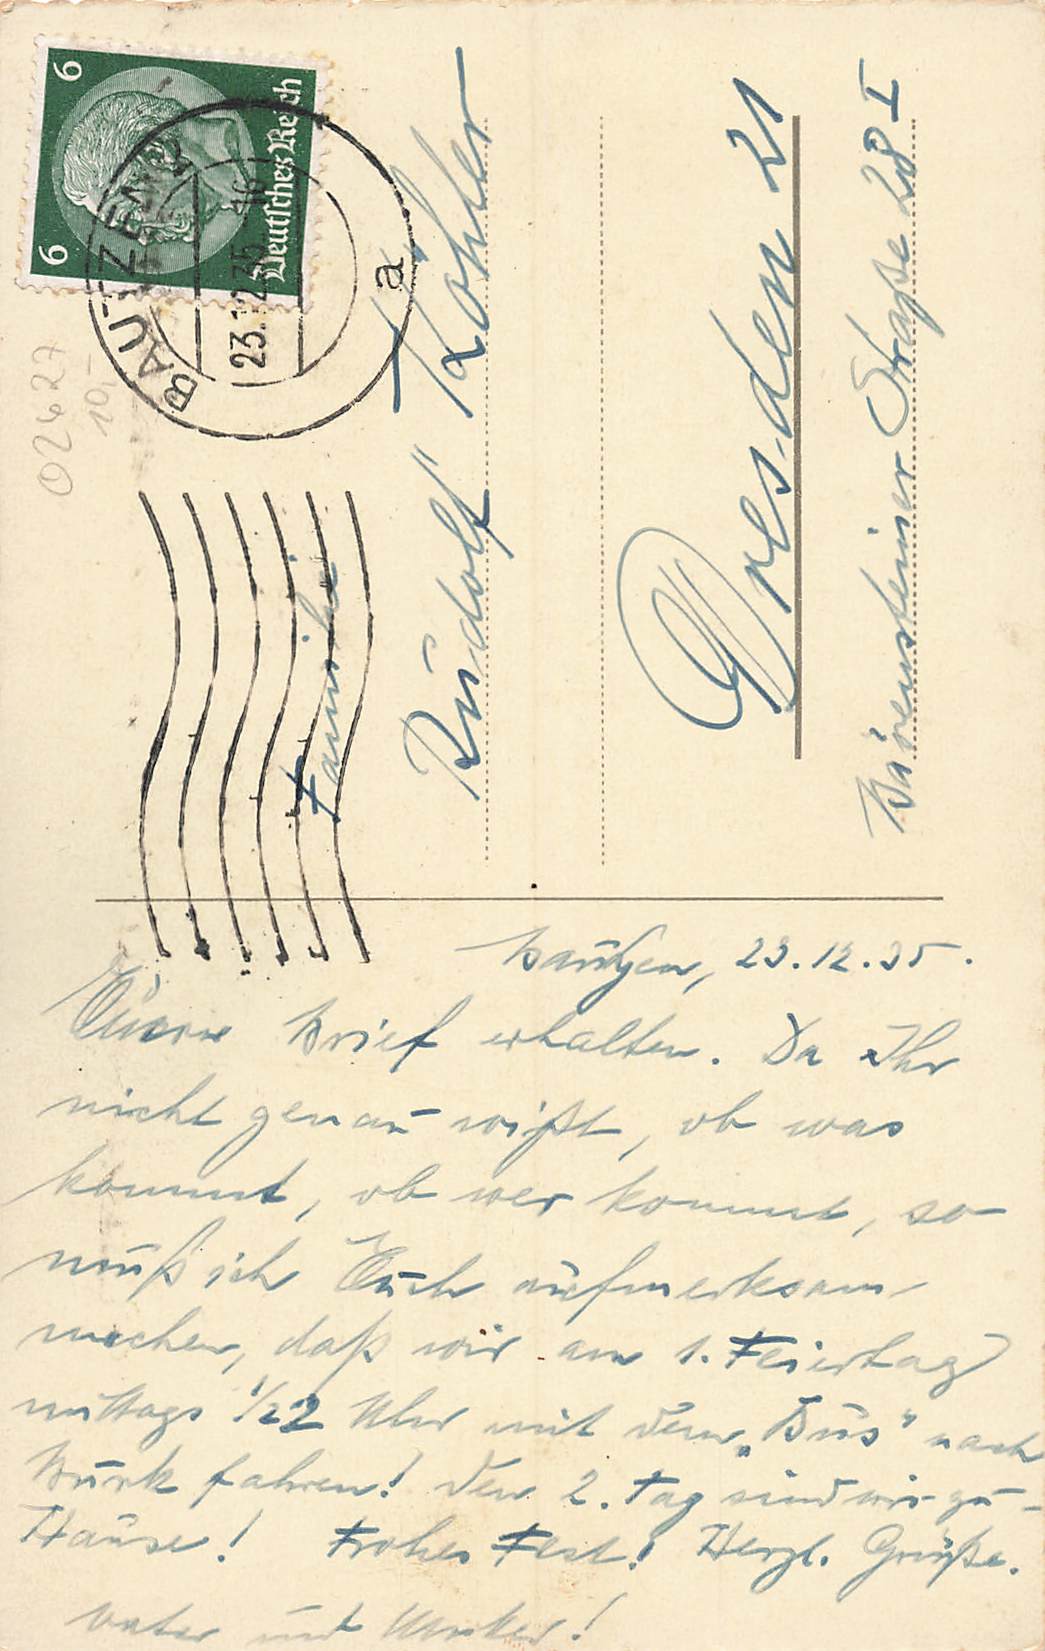 6 6
Deutsches Reich
BAUTZEN
23.12.35 16
a
02627
10,-
Familie
Rudolf Köhler
Dresden 21
Bärensteiner Straße 28 I
Bautzen, 23.12.35.
Euern Brief erhalten. Da Ihr
nicht genau wißt, ob was
kommt, ob wer kommt, so
muß ich Euch aufmerksam
machen, daß wir am 1. Feiertag
mittags 1/22 Uhr mit dem „Bus" nach
Burk fahren! Den 2. Tag sind wir zu-
Hause! Frohes Fest! Herzl. Grüße.
Vater und Mutter!